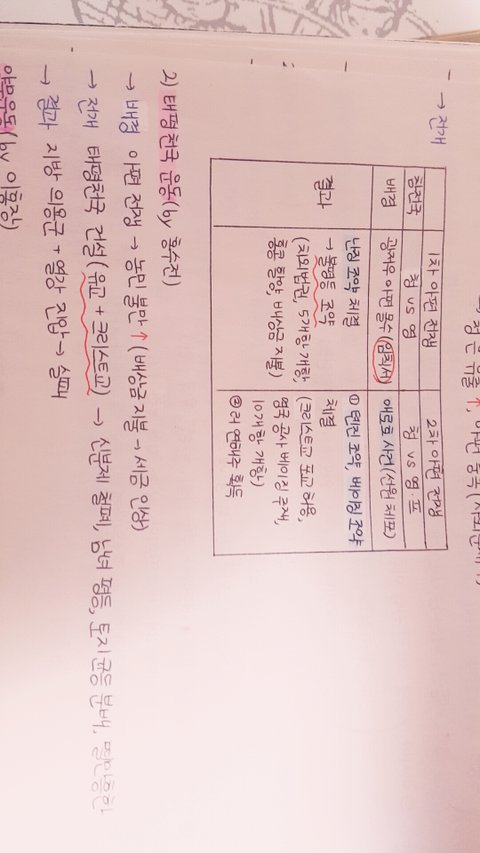 → 전개
1차 아편 전쟁 2차 아편 전쟁
참전국 청 vs 영 청 vs 영·프
배경 광저우 아편 몰수 (임칙서) 애로호 사건 (선원 체포)
결과
난징 조약 체결
→ 불평등 조약
(치외법권, 5개항 개항,
홍콩 할양, 배상금 지불)
① 톈진 조약, 베이징 조약
체결
(크리스트교 포교 허용,
영국 공사 베이징 주재,
10개항 개항)
② 러 연해주 획득
2) 태평천국 운동 (by 홍수전)
→ 배경 아편 전쟁 → 농민 불만↑ (배상금 지불 → 세금 인상)
→ 전개 태평천국 건설 (유교 + 크리스트교) → 신분제 철폐, 남녀 평등, 토지 균등 분배, 멸만흥한
→ 결과 지방 의용군 + 열강 진압 → 실패
양무운동 (by 이홍장)